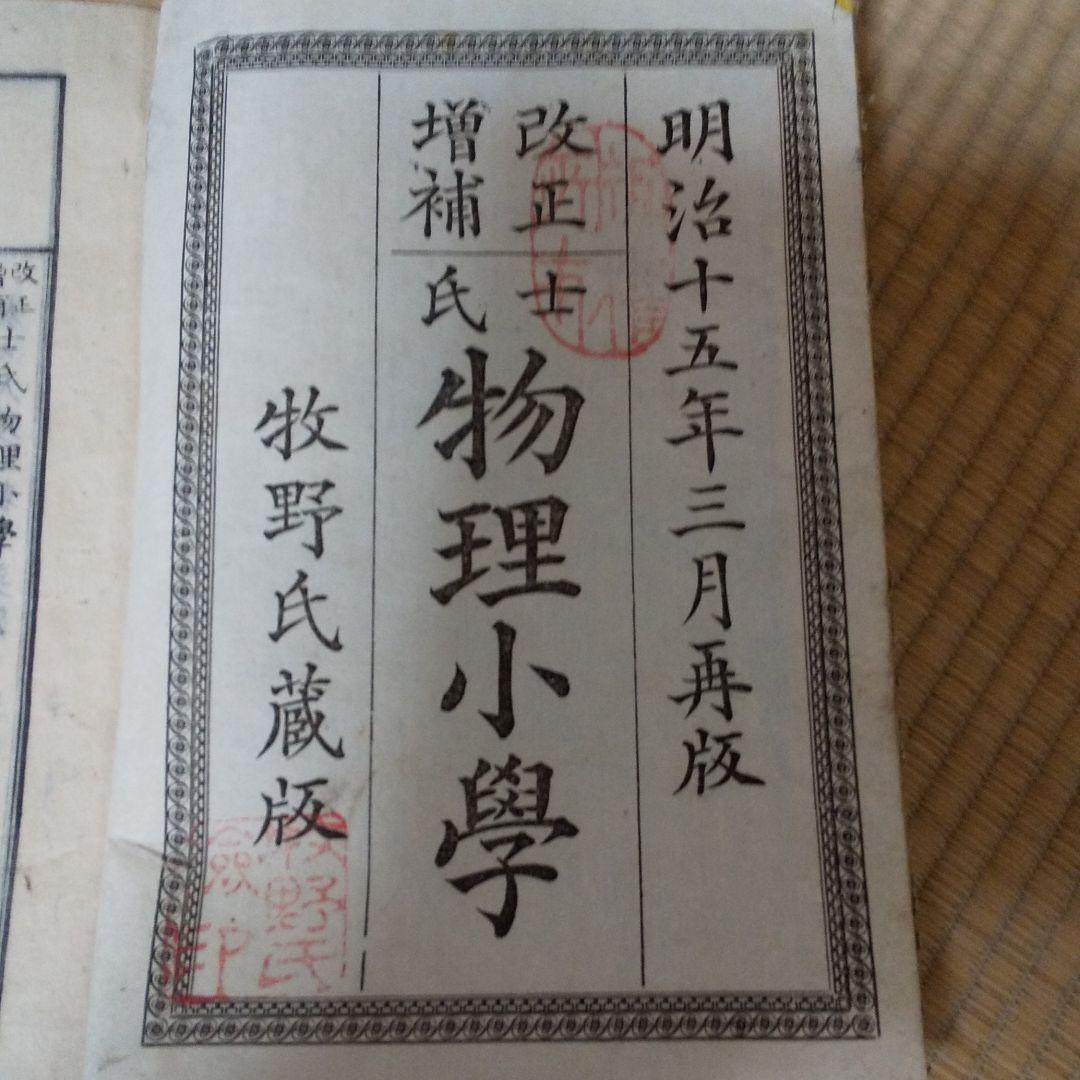 明治十五年三月再版
改正
増補
士氏
物理小學
牧野氏蔵版
牧野氏
印
改正
増補
士氏物理小學